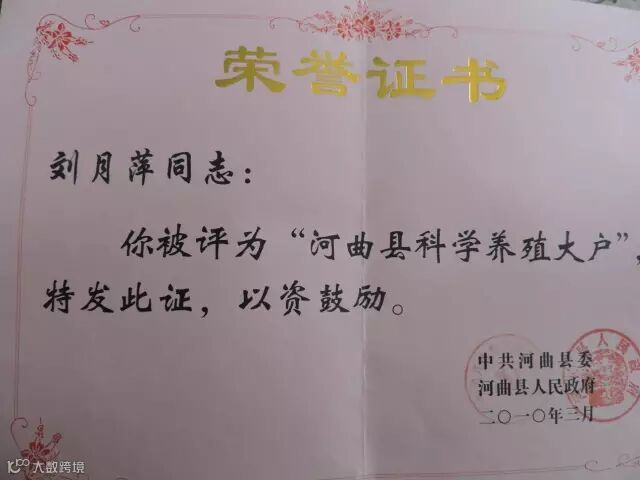 荣誉证书
刘月萍同志：
你被评为“河曲县科学养殖大户”，
特发此证，以资鼓励。
中共河曲县委
河曲县人民政府
二〇一〇年三月
大数跨境